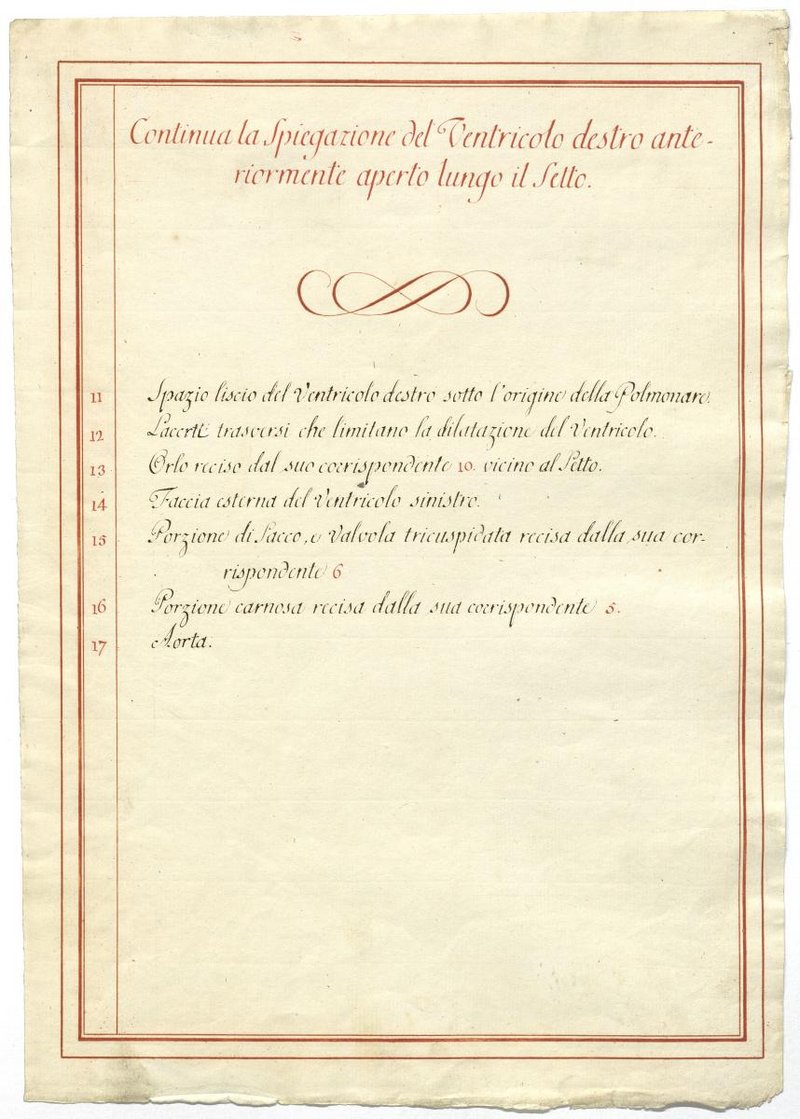 Continua la Spiegazione del Ventricolo destro ante-
riormente aperto lungo il Setto.
11 Spazio liscio del Ventricolo destro sotto l'origine della Polmonare.
12 Lacerti trasversi che limitano la dilatazione del Ventricolo.
13 Orlo reciso dal suo corrispondente 10. vicino al Setto.
14 Faccia esterna del Ventricolo sinistro.
15 Porzione di Sacco, e Valvola tricuspidata recisa dalla sua cor-
rispondente 6
16 Porzione carnosa recisa dalla sua corrispondente 5.
17 Aorta.